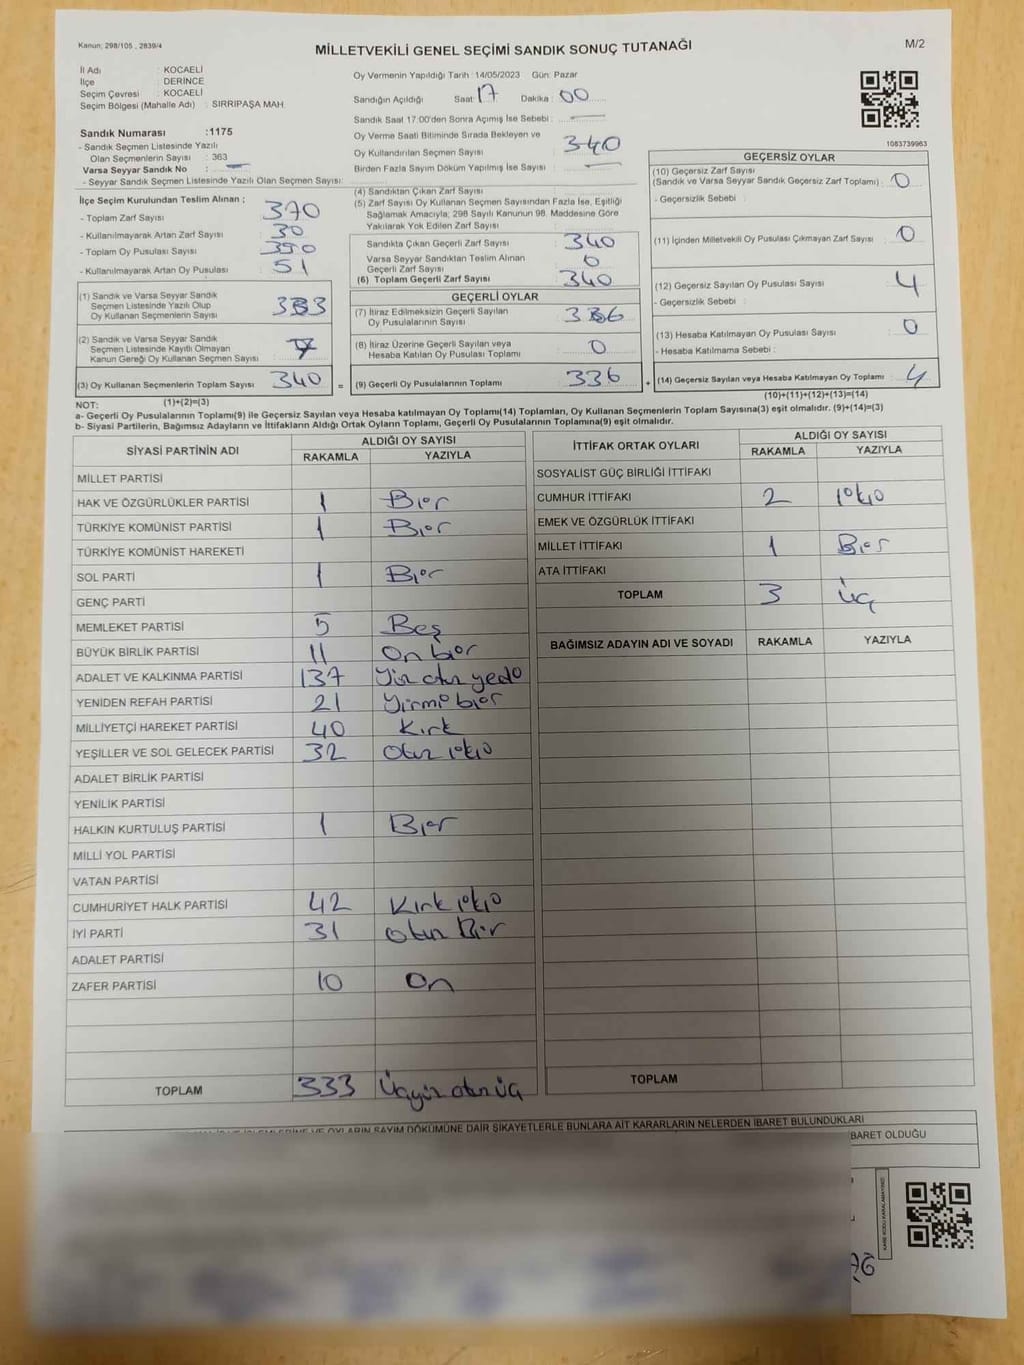 Kanun; 298/105 , 2839/4
MİLLETVEKİLİ GENEL SEÇİMİ SANDIK SONUÇ TUTANAĞI
M/2
İl Adı : KOCAELİ
İlçe : DERİNCE
Seçim Çevresi : KOCAELİ
Seçim Bölgesi (Mahalle Adı) : SIRRIPAŞA MAH
Sandık Numarası :1175
- Sandık Seçmen Listesinde Yazılı
Olan Seçmenlerin Sayısı : 363
Varsa Seyyar Sandık No : —
- Seyyar Sandık Seçmen Listesinde Yazılı Olan Seçmen Sayısı:
Oy Vermenin Yapıldığı Tarih : 14/05/2023 Gün: Pazar
Sandığın Açıldığı Saat 17 Dakika : 00
Sandık Saat 17:00'den Sonra Açımış İse Sebebi : —
Oy Verme Saati Bitiminde Sırada Bekleyen ve
Oy Kullandırılan Seçmen Sayısı : 340
Birden Fazla Sayım Döküm Yapılmış İse Sayısı : —
1083739963
İlçe Seçim Kurulundan Teslim Alınan ;
- Toplam Zarf Sayısı : 370
- Kullanılmayarak Artan Zarf Sayısı : 30
- Toplam Oy Pusulası Sayısı : 390
- Kullanılmayarak Artan Oy Pusulası : 51
(1) Sandık ve Varsa Seyyar Sandık
Seçmen Listesinde Yazılı Olup
Oy Kullanan Seçmenlerin Sayısı : 333
(2) Sandık ve Varsa Seyyar Sandık
Seçmen Listesinde Kayıtlı Olmayan
Kanun Gereği Oy Kullanan Seçmen Sayısı : 7
(3) Oy Kullanan Seçmenlerin Toplam Sayısı : 340 =
(1)+(2)=(3)
(4) Sandıktan Çıkan Zarf Sayısı :
(5) Zarf Sayısı Oy Kullanan Seçmen Sayısından Fazla İse, Eşitliği
Sağlamak Amacıyla; 298 Sayılı Kanunun 98. Maddesine Göre
Yakılarak Yok Edilen Zarf Sayısı :
Sandıkta Çıkan Geçerli Zarf Sayısı : 340
Varsa Seyyar Sandıktan Teslim Alınan
Geçerli Zarf Sayısı : 0
(6) Toplam Geçerli Zarf Sayısı : 340
GEÇERLİ OYLAR
(7) İtiraz Edilmeksizin Geçerli Sayılan
Oy Pusulalarının Sayısı : 336
(8) İtiraz Üzerine Geçerli Sayılan veya
Hesaba Katılan Oy Pusulası Toplamı : 0
(9) Geçerli Oy Pusulalarının Toplamı : 336 +
GEÇERSİZ OYLAR
(10) Geçersiz Zarf Sayısı
(Sandık ve Varsa Seyyar Sandık Geçersiz Zarf Toplamı) : 0
- Geçersizlik Sebebi :
(11) İçinden Milletvekili Oy Pusulası Çıkmayan Zarf Sayısı : 0
(12) Geçersiz Sayılan Oy Pusulası Sayısı : 4
- Geçersizlik Sebebi :
(13) Hesaba Katılmayan Oy Pusulası Sayısı : 0
- Hesaba Katılmama Sebebi :
(14) Geçersiz Sayılan veya Hesaba Katılmayan Oy Toplamı : 4
(10)+(11)+(12)+(13)=(14)
NOT:
a- Geçerli Oy Pusulalarının Toplamı(9) ile Geçersiz Sayılan veya Hesaba katılmayan Oy Toplamı(14) Toplamları, Oy Kullanan Seçmenlerin Toplam Sayısına(3) eşit olmalıdır. (9)+(14)=(3)
b- Siyasi Partilerin, Bağımsız Adayların ve İttifakların Aldığı Ortak Oyların Toplamı, Geçerli Oy Pusulalarının Toplamına(9) eşit olmalıdır.
SİYASİ PARTİNİN ADI
ALDIĞI OY SAYISI
RAKAMLA YAZIYLA
MİLLET PARTİSİ
HAK VE ÖZGÜRLÜKLER PARTİSİ 1 Bir
TÜRKİYE KOMÜNİST PARTİSİ 1 Bir
TÜRKİYE KOMÜNİST HAREKETİ
SOL PARTİ 1 Bir
GENÇ PARTİ
MEMLEKET PARTİSİ 5 Beş
BÜYÜK BİRLİK PARTİSİ 11 On bir
ADALET VE KALKINMA PARTİSİ 137 Yüz otuz yedi
YENİDEN REFAH PARTİSİ 21 Yirmi bir
MİLLİYETÇİ HAREKET PARTİSİ 40 Kırk
YEŞİLLER VE SOL GELECEK PARTİSİ 32 Otuz iki
ADALET BİRLİK PARTİSİ
YENİLİK PARTİSİ
HALKIN KURTULUŞ PARTİSİ 1 Bir
MİLLİ YOL PARTİSİ
VATAN PARTİSİ
CUMHURİYET HALK PARTİSİ 42 Kırk iki
İYİ PARTİ 31 Otuz Bir
ADALET PARTİSİ
ZAFER PARTİSİ 10 On
TOPLAM 333 Üçyüz otuz üç
İTTİFAK ORTAK OYLARI
ALDIĞI OY SAYISI
RAKAMLA YAZIYLA
SOSYALİST GÜÇ BİRLİĞİ İTTİFAKI
CUMHUR İTTİFAKI 2 iki
EMEK VE ÖZGÜRLÜK İTTİFAKI
MİLLET İTTİFAKI 1 Bir
ATA İTTİFAKI
TOPLAM 3 Üç
BAĞIMSIZ ADAYIN ADI VE SOYADI RAKAMLA YAZIYLA
TOPLAM
OYLARIN SAYIM DÖKÜMÜNE DAİR ŞİKAYETLERLE BUNLARA AİT KARARLARIN NELERDEN İBARET BULUNDUKLARI
İBARET OLDUĞU